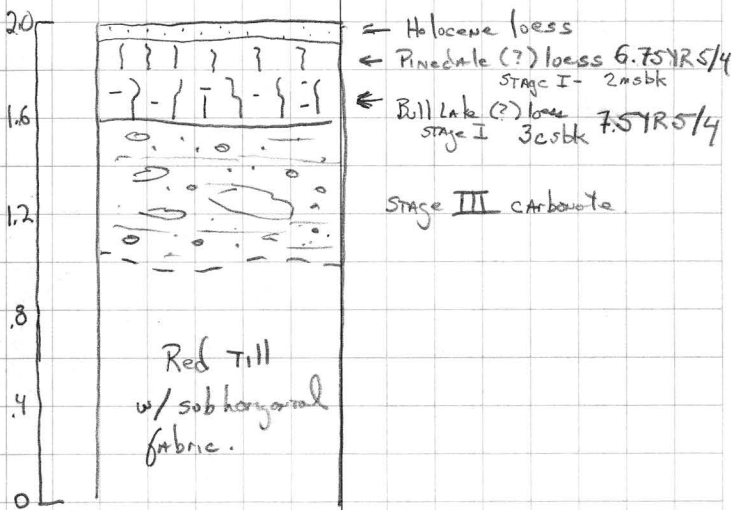 2.0
Holocene loess
Pinedale (?) loess 6.75YR5/4
STAge I- 2msbk
1.6
Bull Lake (?) loess 7.5YR5/4
STAge I 3csbk
1.2
STAGE III cArbonate
.8
Red Till
.4
w/ subhorizontal
fabric.
0